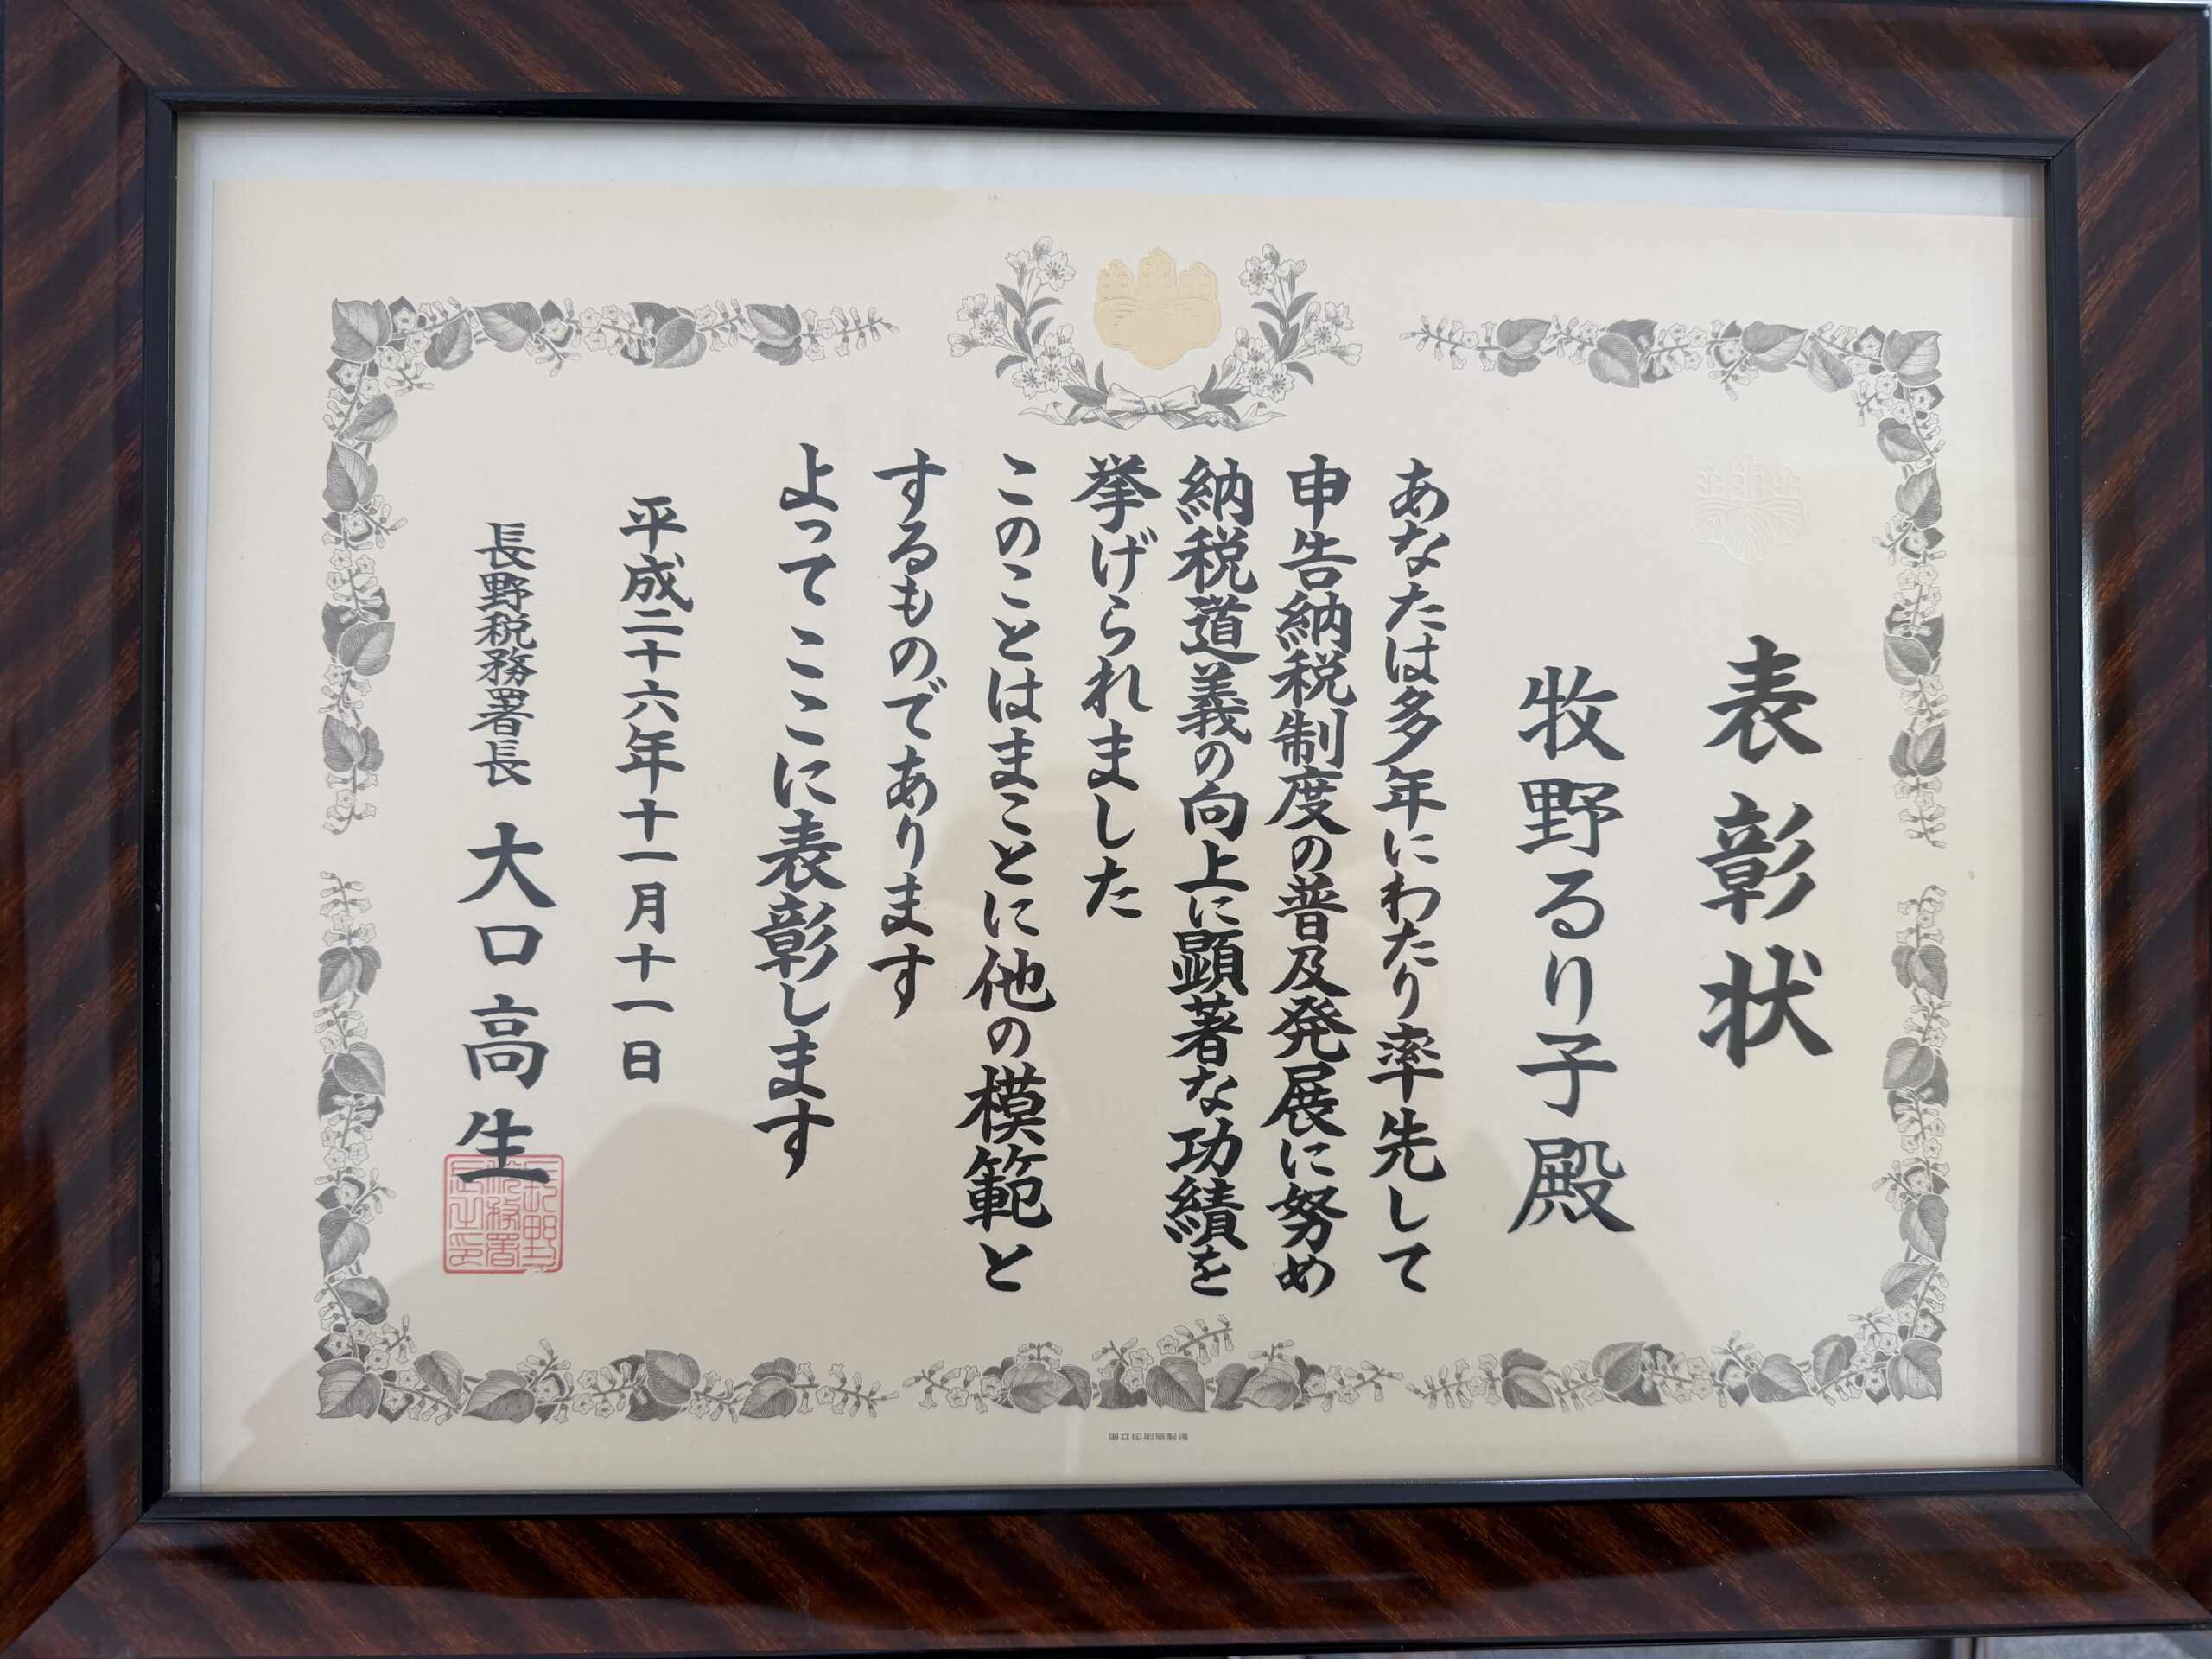 表彰状
牧野るり子殿
あなたは多年にわたり率先して
申告納税制度の普及発展に努め
納税道義の向上に顕著な功績を
挙げられました
このことはまことに他の模範と
するものであります
よってここに表彰します
平成二十六年十一月十一日
長野税務署長 大口高生
長野税務署長之印
国立印刷局製造